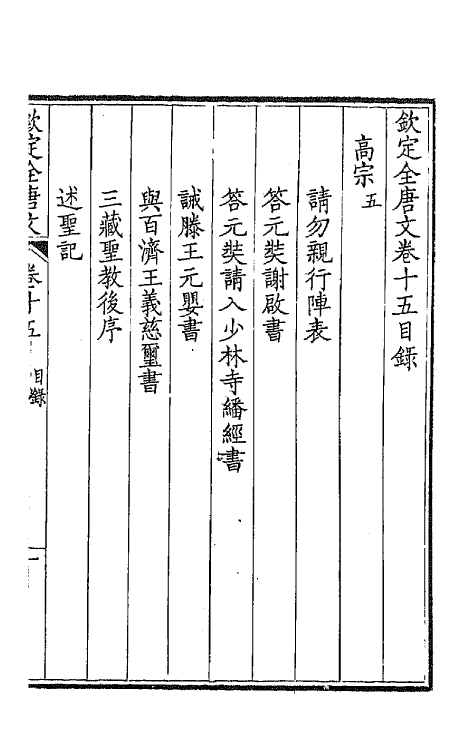 欽定全唐文卷十五目錄
高宗五
請勿親行陣表
答元奘謝啟書
答元奘請入少林寺繙經書
誡滕王元嬰書
與百濟王義慈璽書
三藏聖教後序
述聖記
欽定全唐文
卷十五 目錄
一